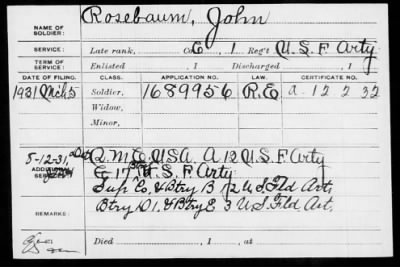 NAME OF SOLDIER: Rosebaum, John
SERVICE: Late rank, Co E, 1 Reg't U.S.F. Arty
TERM OF SERVICE: Enlisted , 1 Discharged , 1
DATE OF FILING. CLASS. APPLICATION NO. LAW. CERTIFICATE NO.
1931 Mch 5 Soldier, 1689956 R.E. a 12 2 32
Widow,
Minor,
5-12-31, Q.M.C. USA. A 12 U.S.F. Arty
ADDITIONAL SERVICE: E 17 U.S.F. Arty.
Sup Co, & Btry B 12 U.S. Fld Art.
REMARKS: Btry D 1, & Btry E 3 U.S. Fld Art.
Died , 1 , at